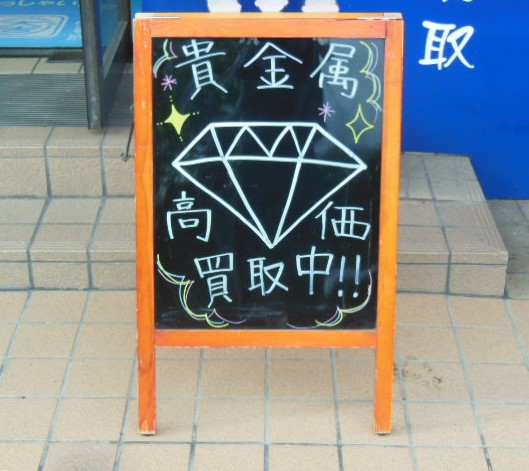 貴金属
高価
買取中!!
取